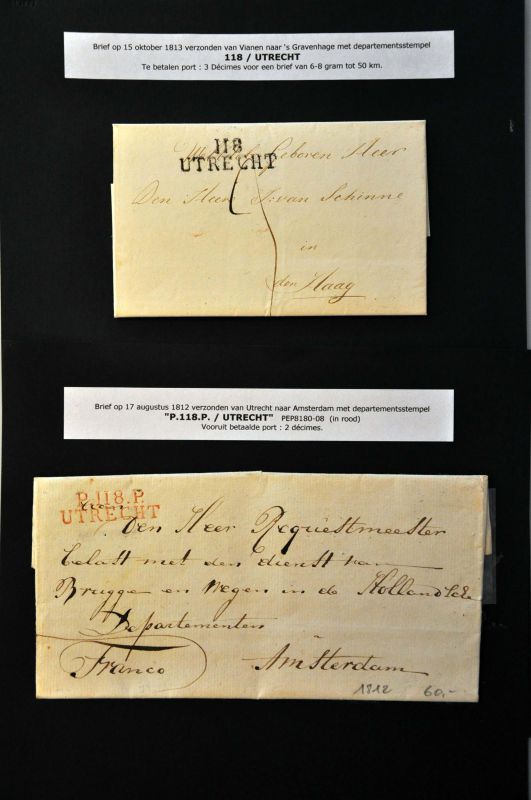 Brief op 15 oktober 1813 verzonden van Vianen naar 's Gravenhage met departementsstempel
118 / UTRECHT
Te betalen port : 3 Décimes voor een brief van 6-8 gram tot 50 km.
118
UTRECHT
Geboren Heer
Den Heer J: van Schinne
in
den Haag
Brief op 17 augustus 1812 verzonden van Utrecht naar Amsterdam met departementsstempel
"P.118.P. / UTRECHT" PEP8180-08 (in rood)
Vooruit betaalde port : 2 décimes.
P.118.P.
UTRECHT
Den Heer Requestmeester
belast met den dienst van
Brugge en Wegen in de Hollandsche
Departementen
Franco Amsterdam
1812 60,-